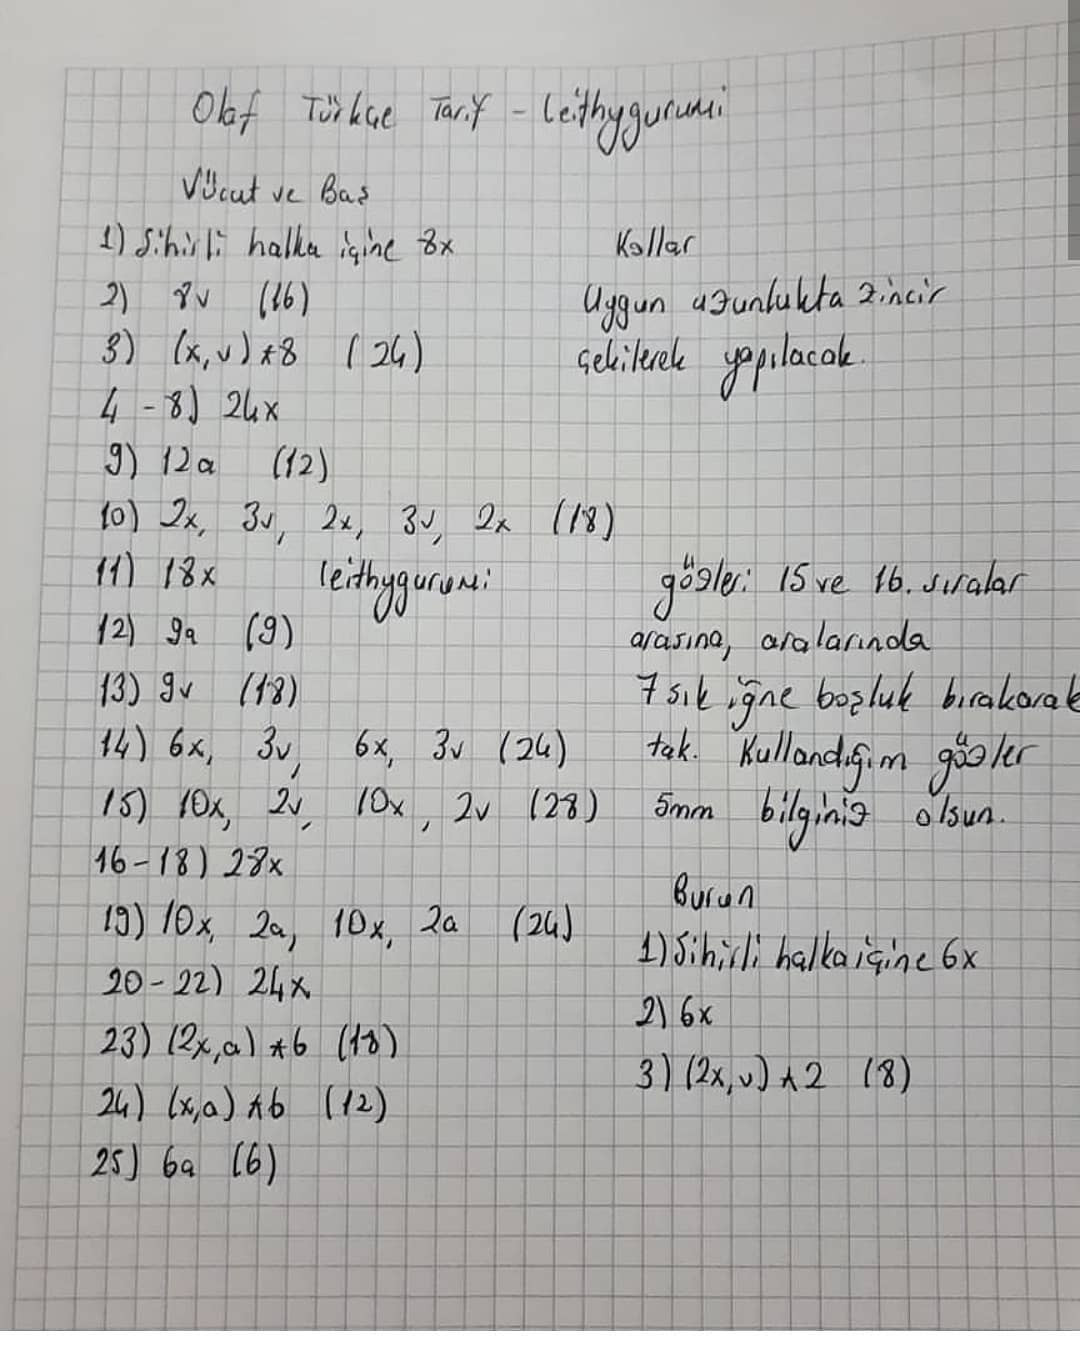 Olaf Türkçe Tarif - Leithygurumi
Vücut ve Baş
1) Sihirli halka içine 8x
2) 8v (16)
3) (x,v)*8 (24)
4-8) 24x
9) 12a (12)
10) 2x, 3v, 2x, 3v, 2x (18)
11) 18x
leithygurumi
12) 9a (9)
13) 9v (18)
14) 6x, 3v, 6x, 3v (24)
15) 10x, 2v, 10x, 2v (28)
16-18) 28x
19) 10x, 2a, 10x, 2a (24)
20-22) 24x
23) (2x,a)*6 (18)
24) (x,a)*6 (12)
25) 6a (6)
Kollar
Uygun uzunlukta zincir
çekilerek yapılacak.
gözler: 15 ve 16. sıralar
arasına, aralarında
7 sık iğne boşluk bırakarak
tak. Kullandığım gözler
5mm bilginiz olsun.
Burun
1) Sihirli halka içine 6x
2) 6x
3) (2x,v)*2 (8)